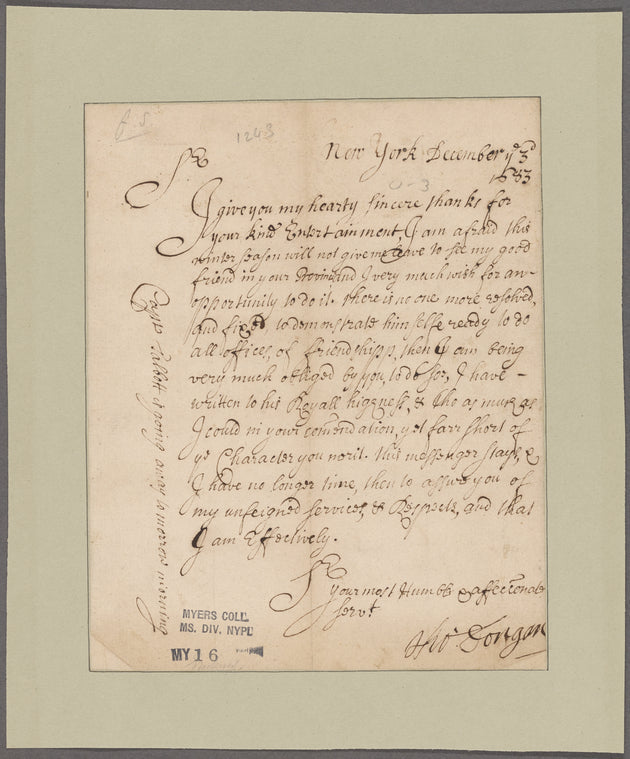 1243
New York December ye 3d
1683
Sr
I give you my hearty sincere thanks for
your kind Entertainment, I am afraid this
winter season will not give me leave to see my good
friend in your Province, and I very much wish for an
opportunity to do it. there is no one more resolved,
and fixed, to demonstrate himselfe ready to do
all offices, of friendshipp, then I am being
very much obliged by you, to do so, I have
written to his Royall highness, & tho as much as
I could in your comendation, yet farr short of
ye Character you merit. this messenger stays, &
I have no longer time, then to assure you of
my unfeigned services, & Respects, and that
I am Effectively.
Sr
your most Humble & affectionate
servt
Tho Dongan
Capt Talbott is going away to morrow morning
MYERS COLL.
MS. DIV. NYPL
MY 16